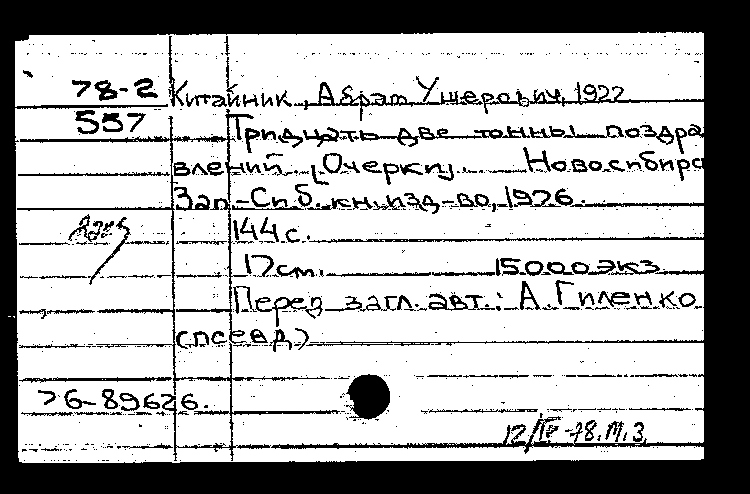 78-2 Китайник, Абрам Ушерович, 1922
557 Тридцать две тонны поздра
влений [Очерки]. Новосибирс
Зап.-Сиб. кн. изд-во, 1976.
144 с.
17 см. 15000 экз
Перед загл. авт.: А. Гиленко
(псевд)
76-89626.
12/IV-78. М.З.